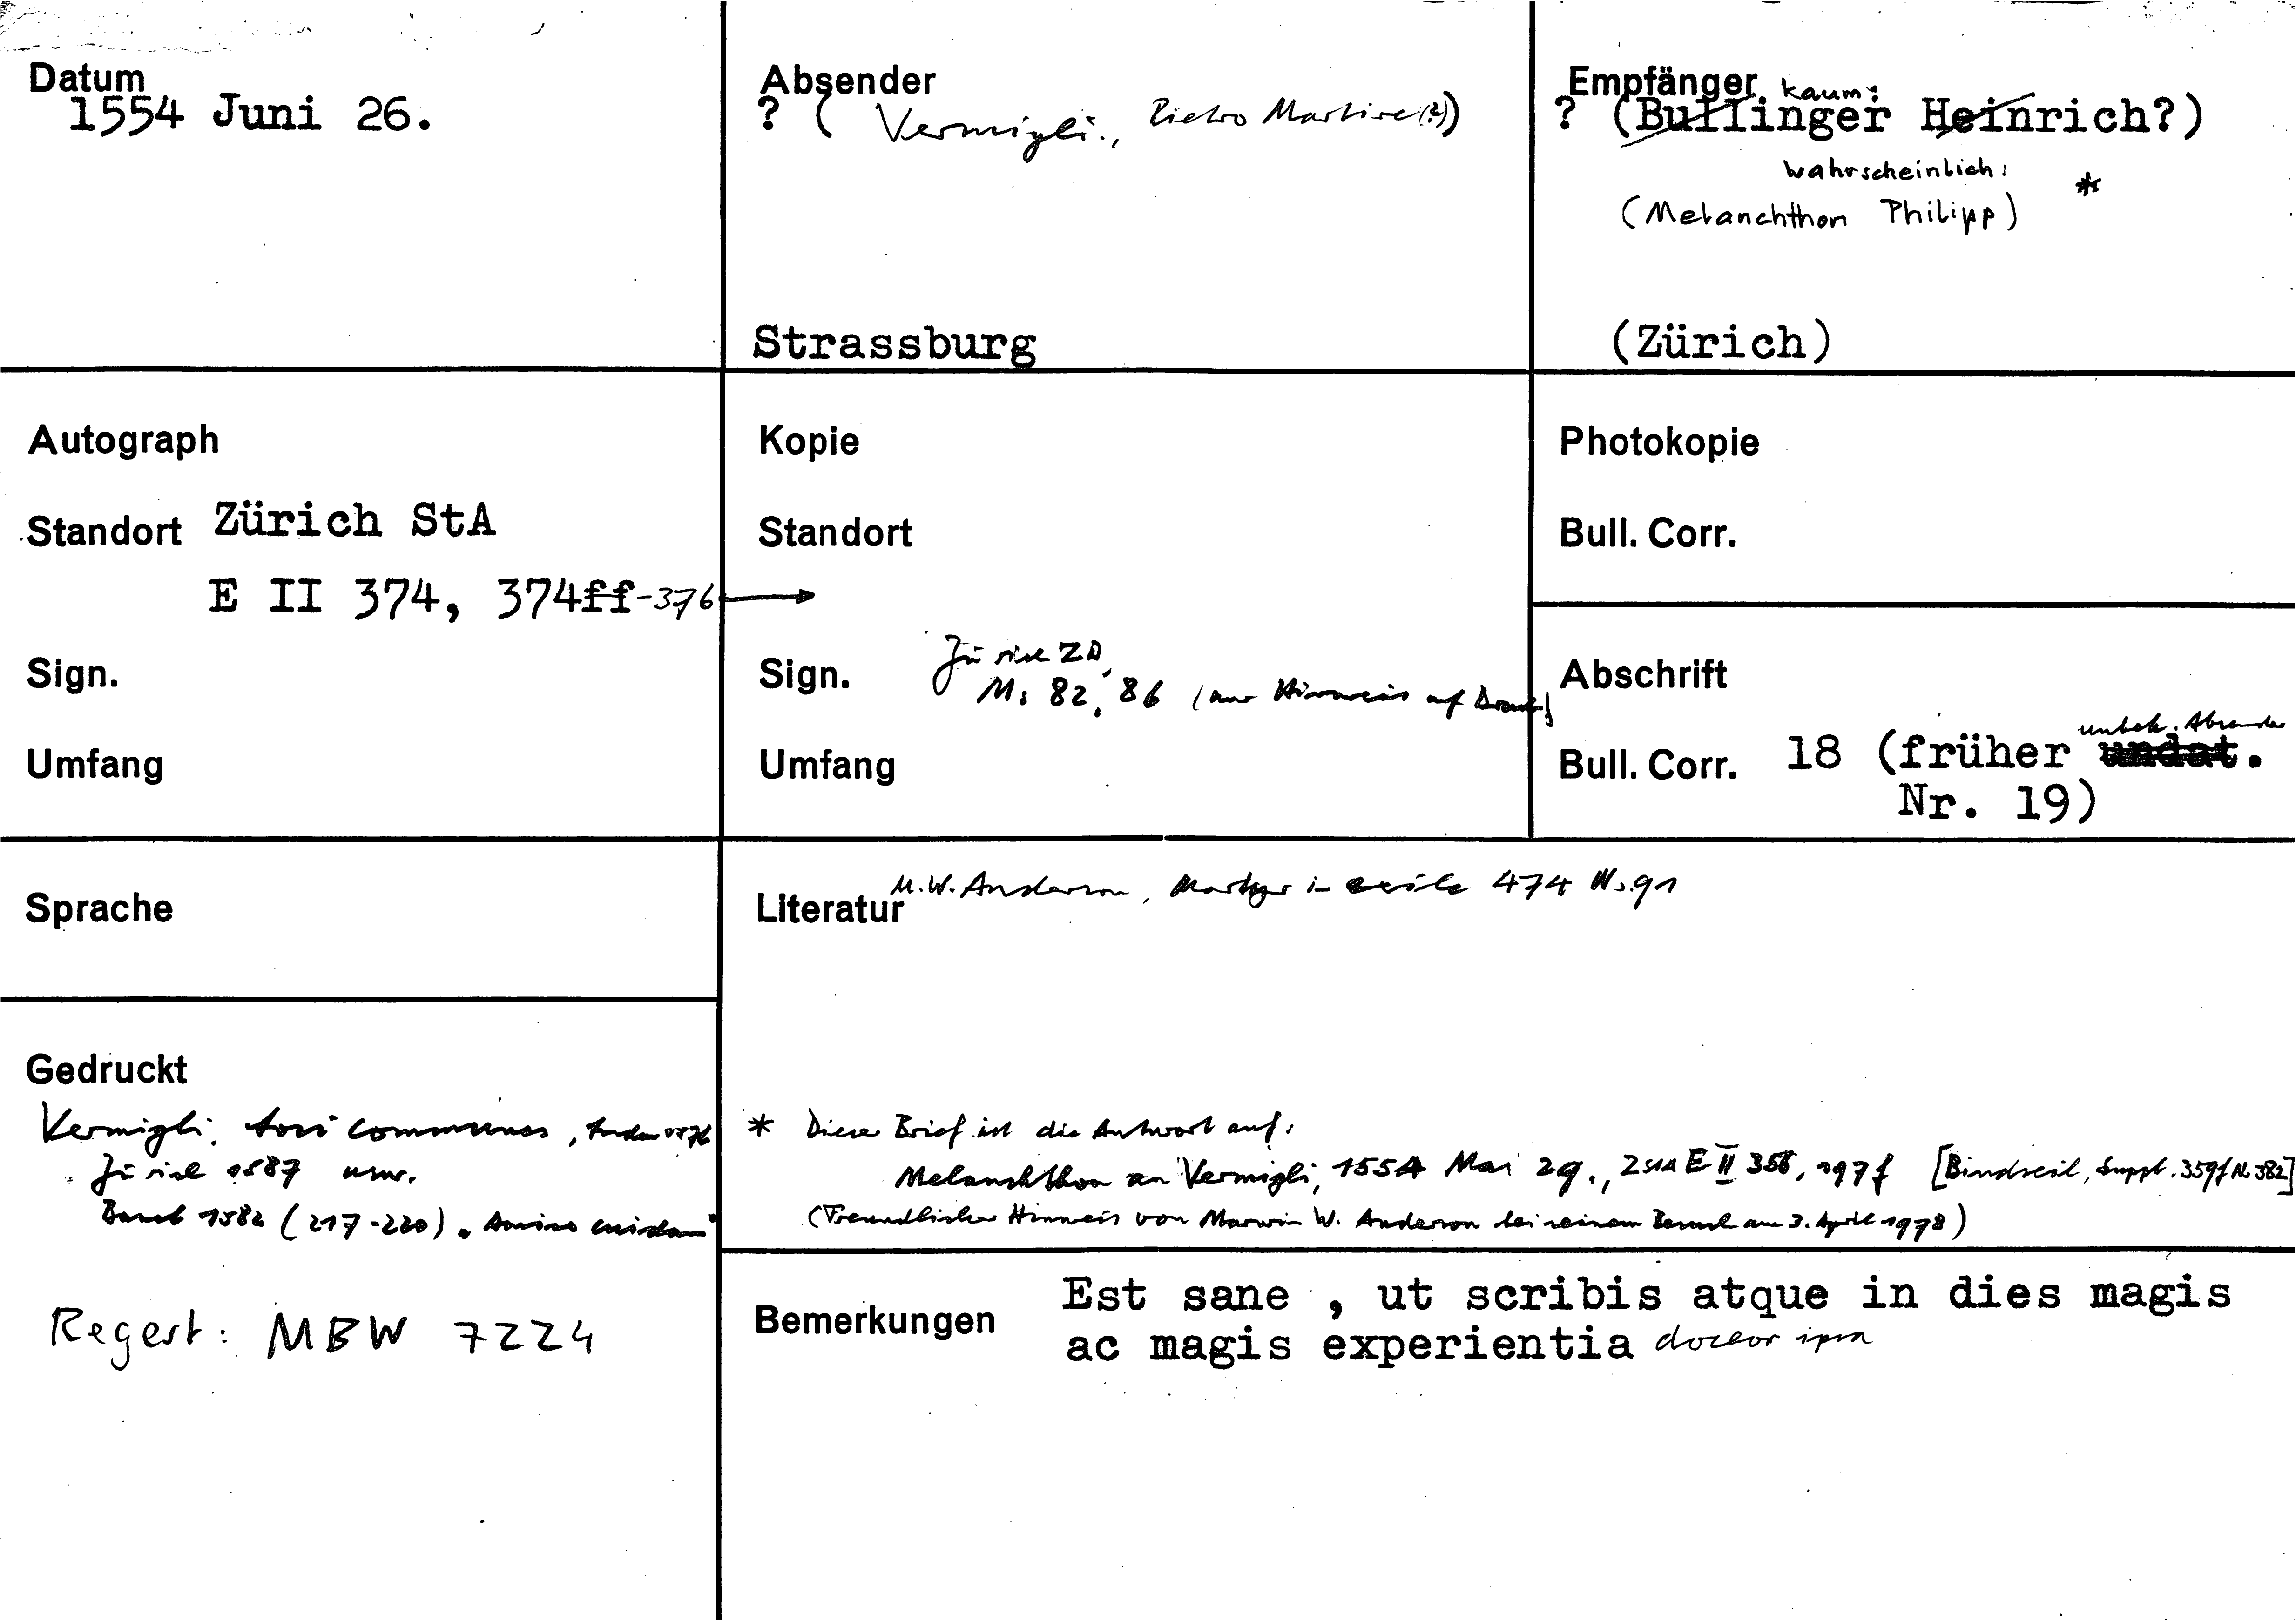 Datum
1554 Juni 26.
Absender
? ( Vermigli., Pietro Martire (?))
Strassburg
Empfänger kaum:
? (Bullinger Heinrich?)
wahrscheinlich: *
(Melanchthon Philipp)
(Zürich)
Autograph
Standort Zürich StA
E II 374, 374ff-376
Sign.
Umfang
Kopie
Standort
Zürich ZB
Sign. Ms 82, 86 (nur Hinweis auf Druck)
Umfang
Photokopie
Bull. Corr.
Abschrift
unbek. Absender
Bull. Corr. 18 (früher undat.
Nr. 19)
Sprache
Gedruckt
Vermigli, Loci communes, London 1576
Zürich 1587 usw.
Basel 1582 (217-220) "Amico cuidam"
Regest: MBW 7224
M.W. Anderson, Martyr in exile 474 N. 91
Literatur
* Dieser Brief ist die Antwort auf:
Melanchthon an Vermigli, 1554 Mai 29., ZStA E II 356, 197f [Bindseil, Suppl. 359f N. 382]
(Freundlicher Hinweis von Marwin W. Anderson bei seinem Besuch am 3. April 1978)
Bemerkungen
Est sane , ut scribis atque in dies magis
ac magis experientia doceor ipsa